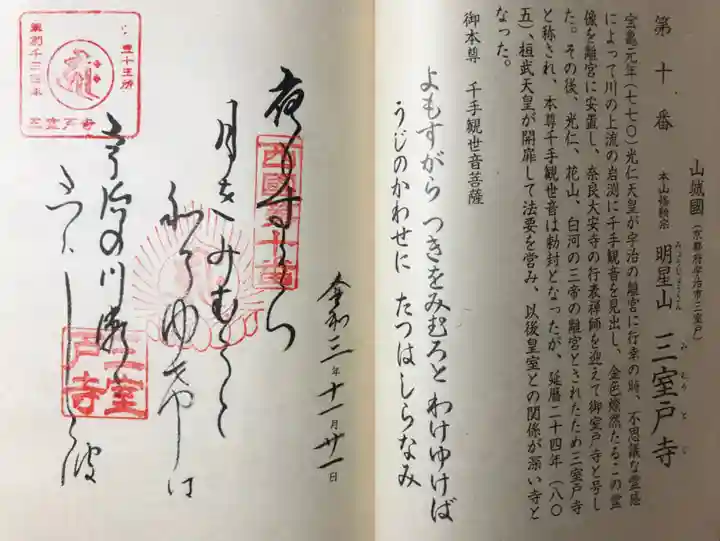 第十番
山城國(京都府宇治市三室戸)
本山修験宗 明星山 三室戸寺
みょうじょうざん みむろとじ
宝亀元年(七七〇)光仁天皇が宇治の離宮に行幸の時、不思議な霊感
によって川の上流の岩渕に千手観音を見出し、金色燦然たるこの霊
像を離宮に安置し、奈良大安寺の行表禅師を迎えて御室戸寺と号し
た。その後、光仁、花山、白河の三帝の離宮とされたため三室戸寺
と称され、本尊千手観世音は勅封となったが、延暦二十四年(八〇
五)、桓武天皇が開扉して法要を営み、以後皇室との関係が深い寺と
なった。
御本尊 千手観世音菩薩
よもすがら つきをみむろと わけゆけば
うじのかわせに たつはしらなみ
令和三年十一月廿一日
夜もすがら
月をみむろと
わけゆけは
宇治の川瀬に
たつはしら波
西國第十番
三室戸寺
三室戸寺